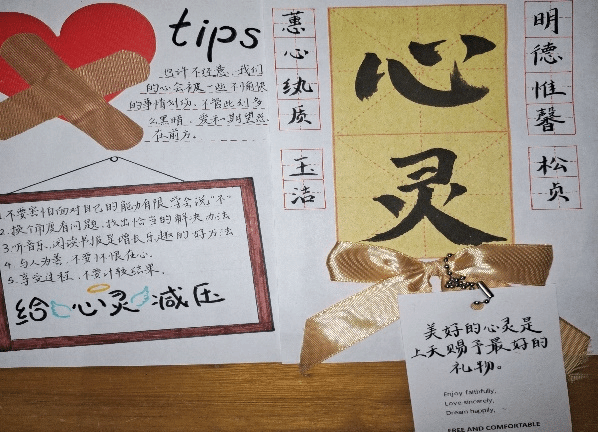 tips
也许不经意,我们
的心会被一些不愉快
的事情刺伤。不管此刻多
么黑暗,爱和期望总
在前方。
1.不要害怕面对自己的能力有限,学会说“不”
2.换个角度看问题,找出恰当的解决办法
3.听音乐、阅读书报是增长乐趣的好方法
4.与人为善,不要怀恨在心。
5.享受过程,不要计较结果。
给心灵减压
蕙心纨质
玉洁
心灵
明德惟馨
松贞
美好的心灵是
上天赐予最好的
礼物。
Enjoy faithfully,
Love sincerely,
Dream happily,
FREE AND COMFORTABLE